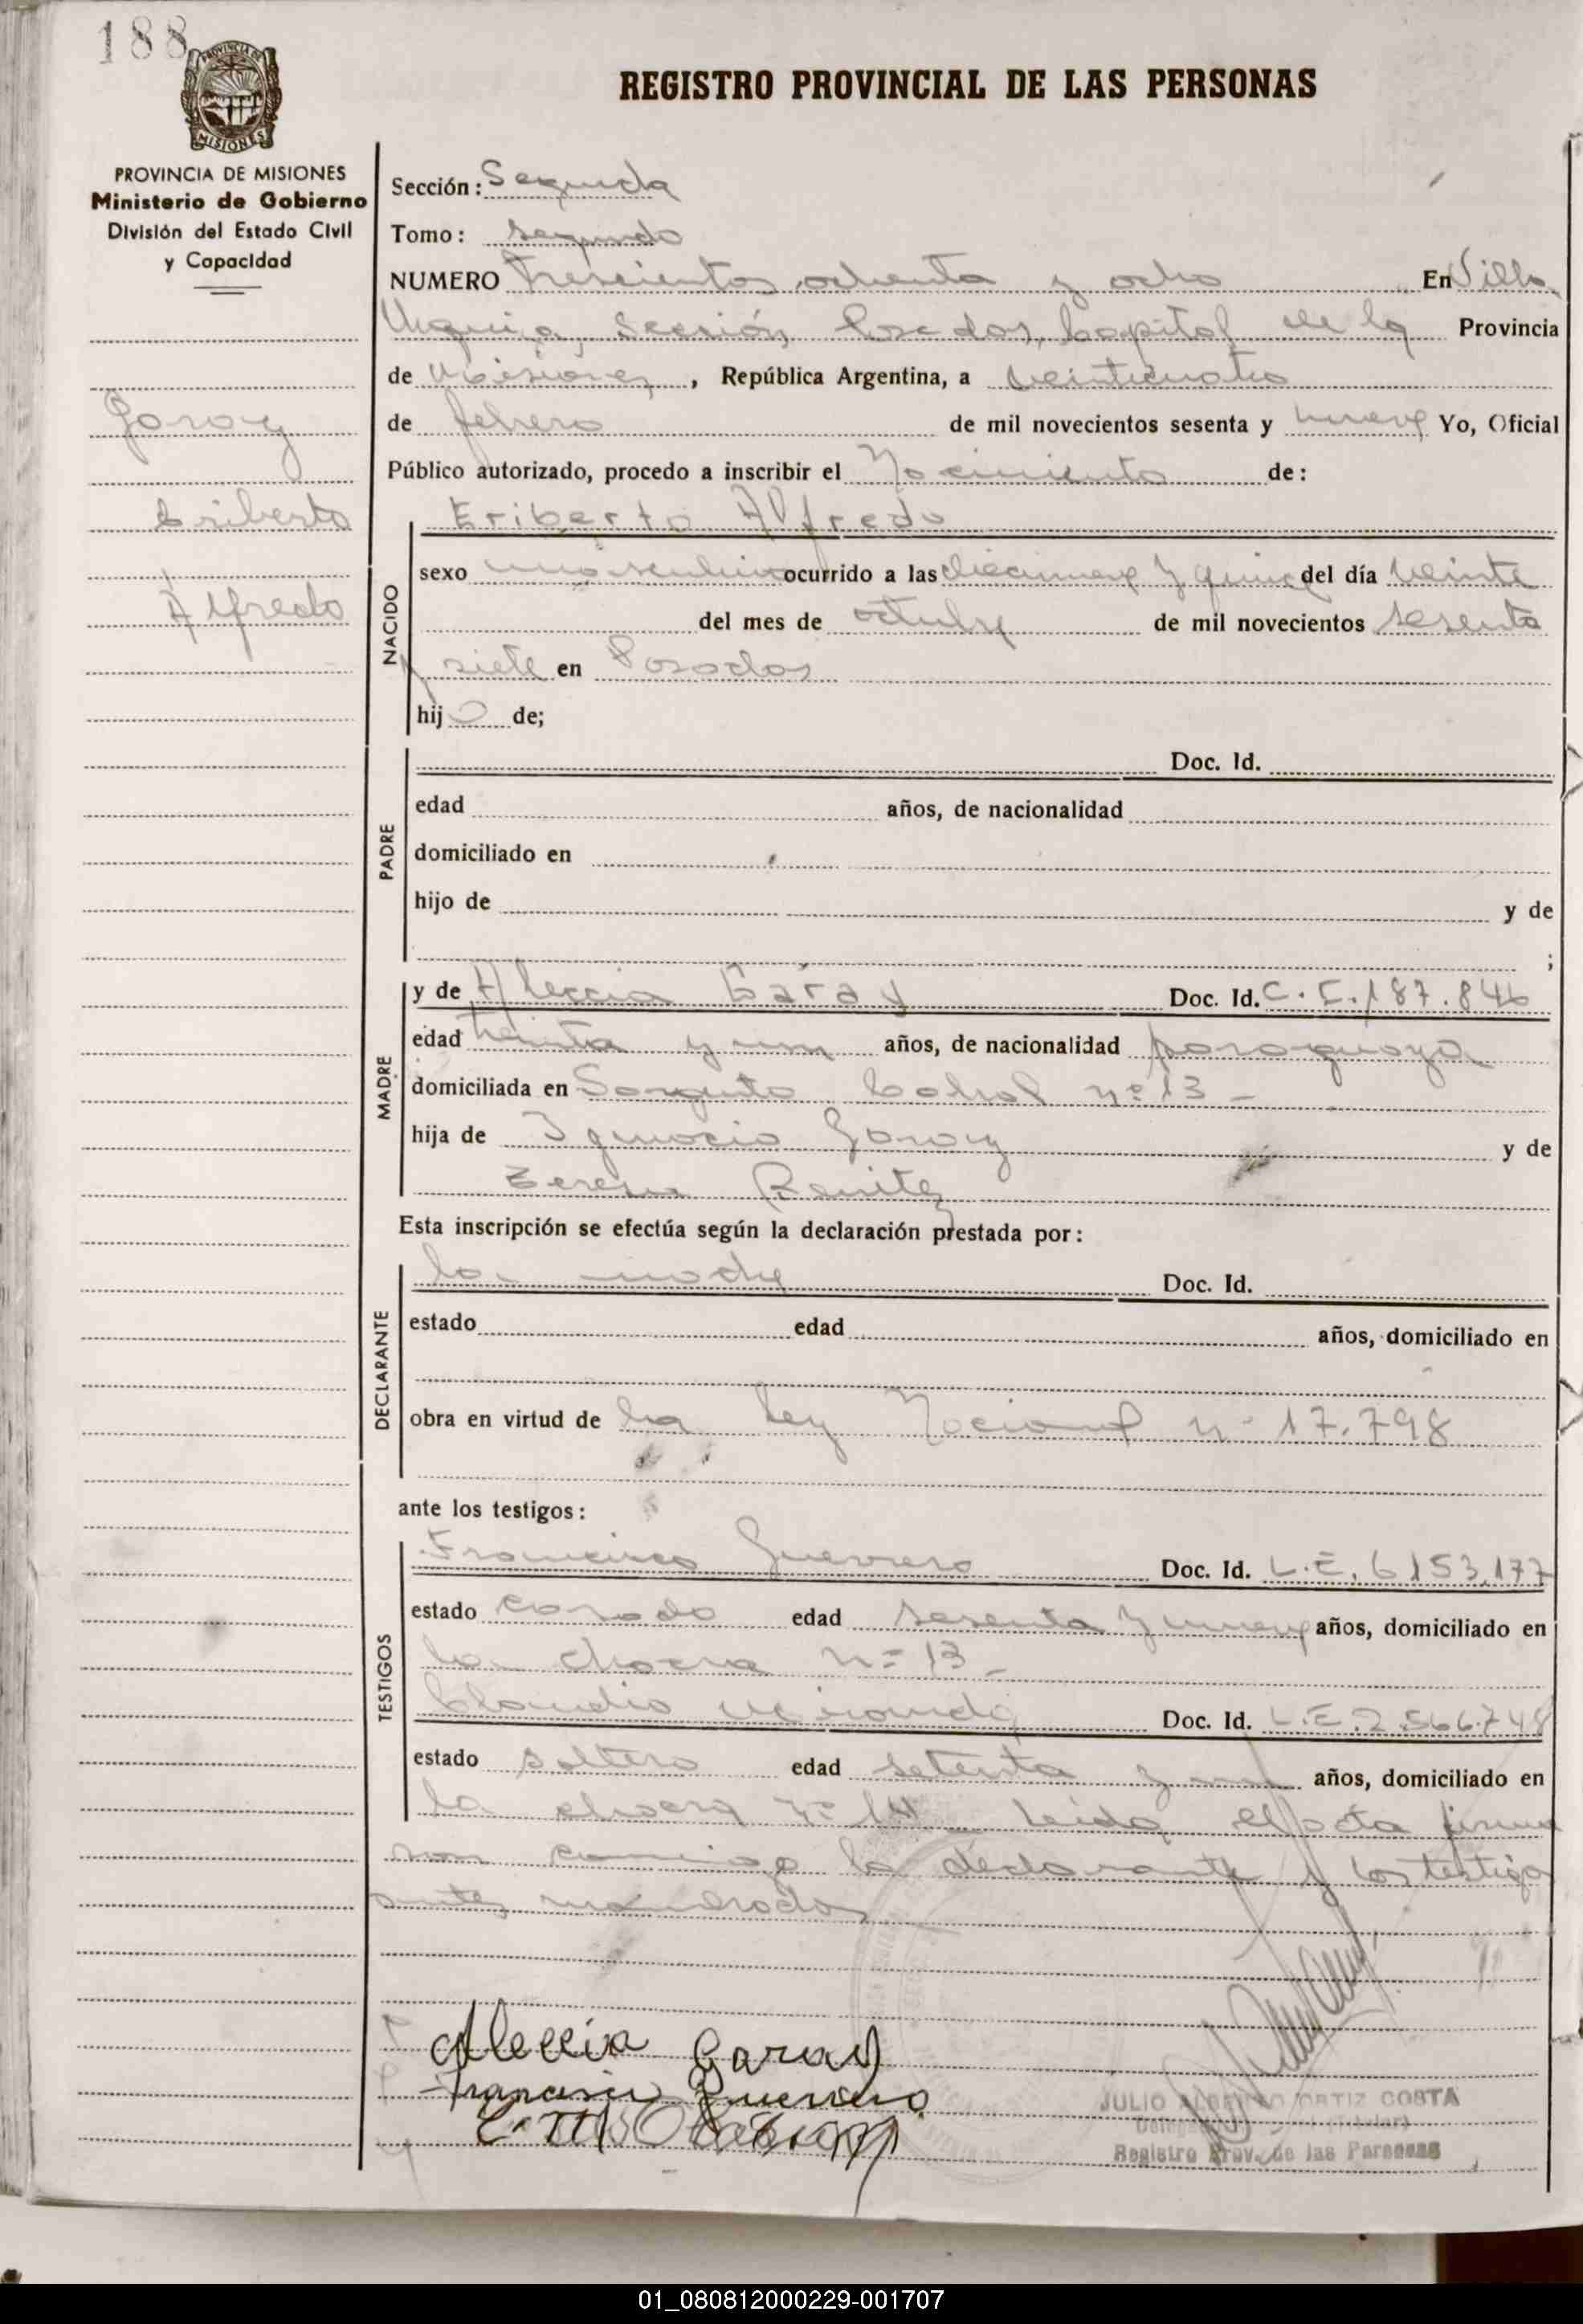 188
REGISTRO PROVINCIAL DE LAS PERSONAS
PROVINCIA DE MISIONES
Ministerio de Gobierno
División del Estado Civil
y Capacidad
Garay
Eriberto
Alfredo
Sección: Segunda
Tomo: Segundo
NUMERO Trescientos ochenta y ocho En Villa
Urquiza, Sección, Posadas, Capital de la Provincia
de Misiones, República Argentina, a veinticuatro
de febrero de mil novecientos sesenta y nueve Yo, Oficial
Público autorizado, procedo a inscribir el Nacimiento de:
NACIDO
Eriberto Alfredo
sexo masculino ocurrido a las diecinueve y quince del día veinte
del mes de octubre de mil novecientos sesenta
y siete en Posadas
hijo de;
PADRE
Doc. Id.
edad años, de nacionalidad
domiciliado en
hijo de y de
;
MADRE
y de Aleccia Garay Doc. Id. C.I. 187.846
edad treinta y un años, de nacionalidad paraguaya
domiciliada en Sargento Cabral nº 13 -
hija de Ignacio Garay y de
Teresa Benitez
Esta inscripción se efectúa según la declaración prestada por:
DECLARANTE
la madre Doc. Id.
estado edad años, domiciliado en
obra en virtud de la Ley Nacional nº 17.798
ante los testigos:
TESTIGOS
Francisco Guerrero Doc. Id. L.E. 6153.177
estado casado edad sesenta y nueve años, domiciliado en
la chacra nº 13 -
Claudio Miranda Doc. Id. L.E. 2.566.748
estado soltero edad setenta y un años, domiciliado en
la chacra nº Leida el acta firman
con conmigo la declarante y los testigos
antes nombrados
Aleccia Garay
Francisco Guerrero
JULIO ALBERTO ORTIZ COSTA
Registro Prov. de las Personas
01_080812000229-001707